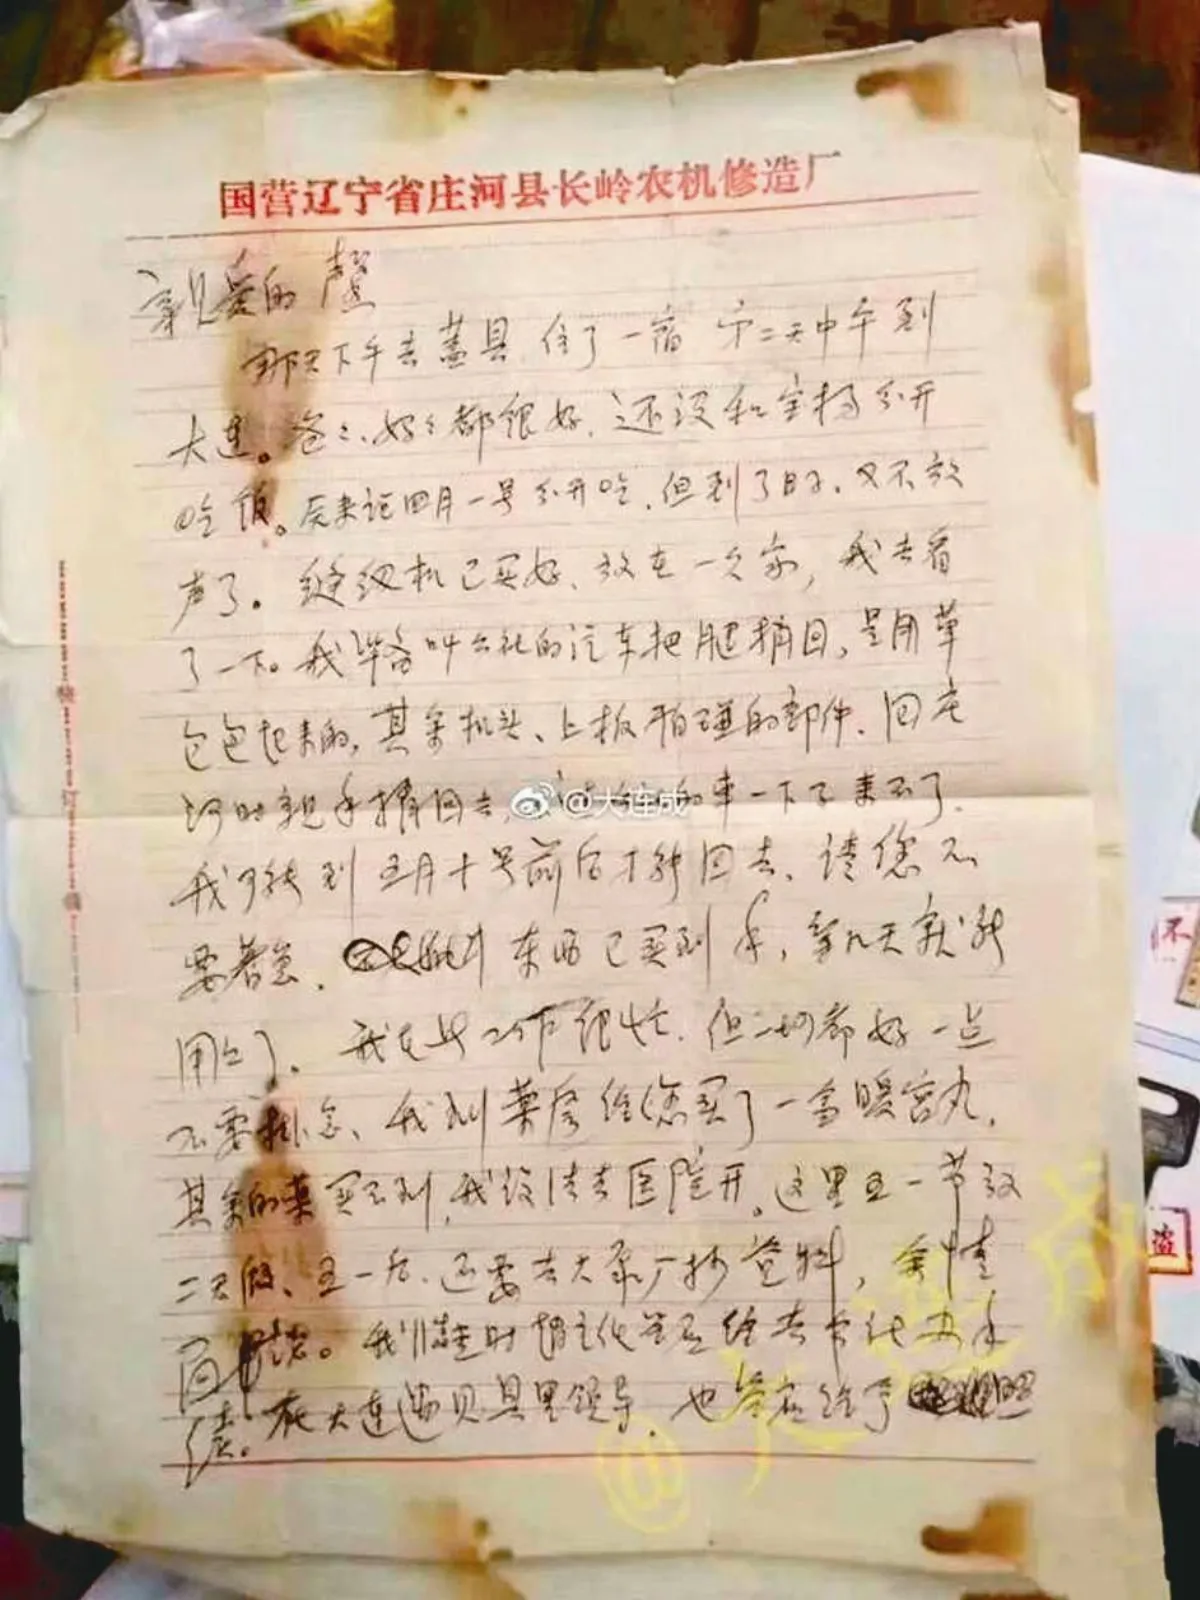 国营辽宁省庄河县长岭农机修造厂
亲爱的馨
那天下午去盖县,住了一宿 第二天中午到
大连。爸爸、妈妈都很好,还没和宝杨分开
吃饭。后来说四月一号分开吃,但到了日子,又不放
声了。缝纫机已买好、放在一久家,我去看
了一下。我准备叫公社的汽车把腿捎回,是用草
包包起来的,其余机头、上板怕碰的部件,回庄
河时亲手捎回去, 的车一下子来不了,
我可能到五月十号前后才能回去、请您不
要着急, 东西已买到手,等几天就能
用上了。我在此工作很忙,但一切都好一点
不要挂念、我到药房给您买了一盒暖宫丸,
其余的药买不到,我设法去医院开。这里五一节放
二天假、五一后,还要去大 厂抄资料,余情
面谈。我 时 主任答应给去 办手
续。在大连遇见县里领导,也答应给予 照
@大连成
@大连成
盗